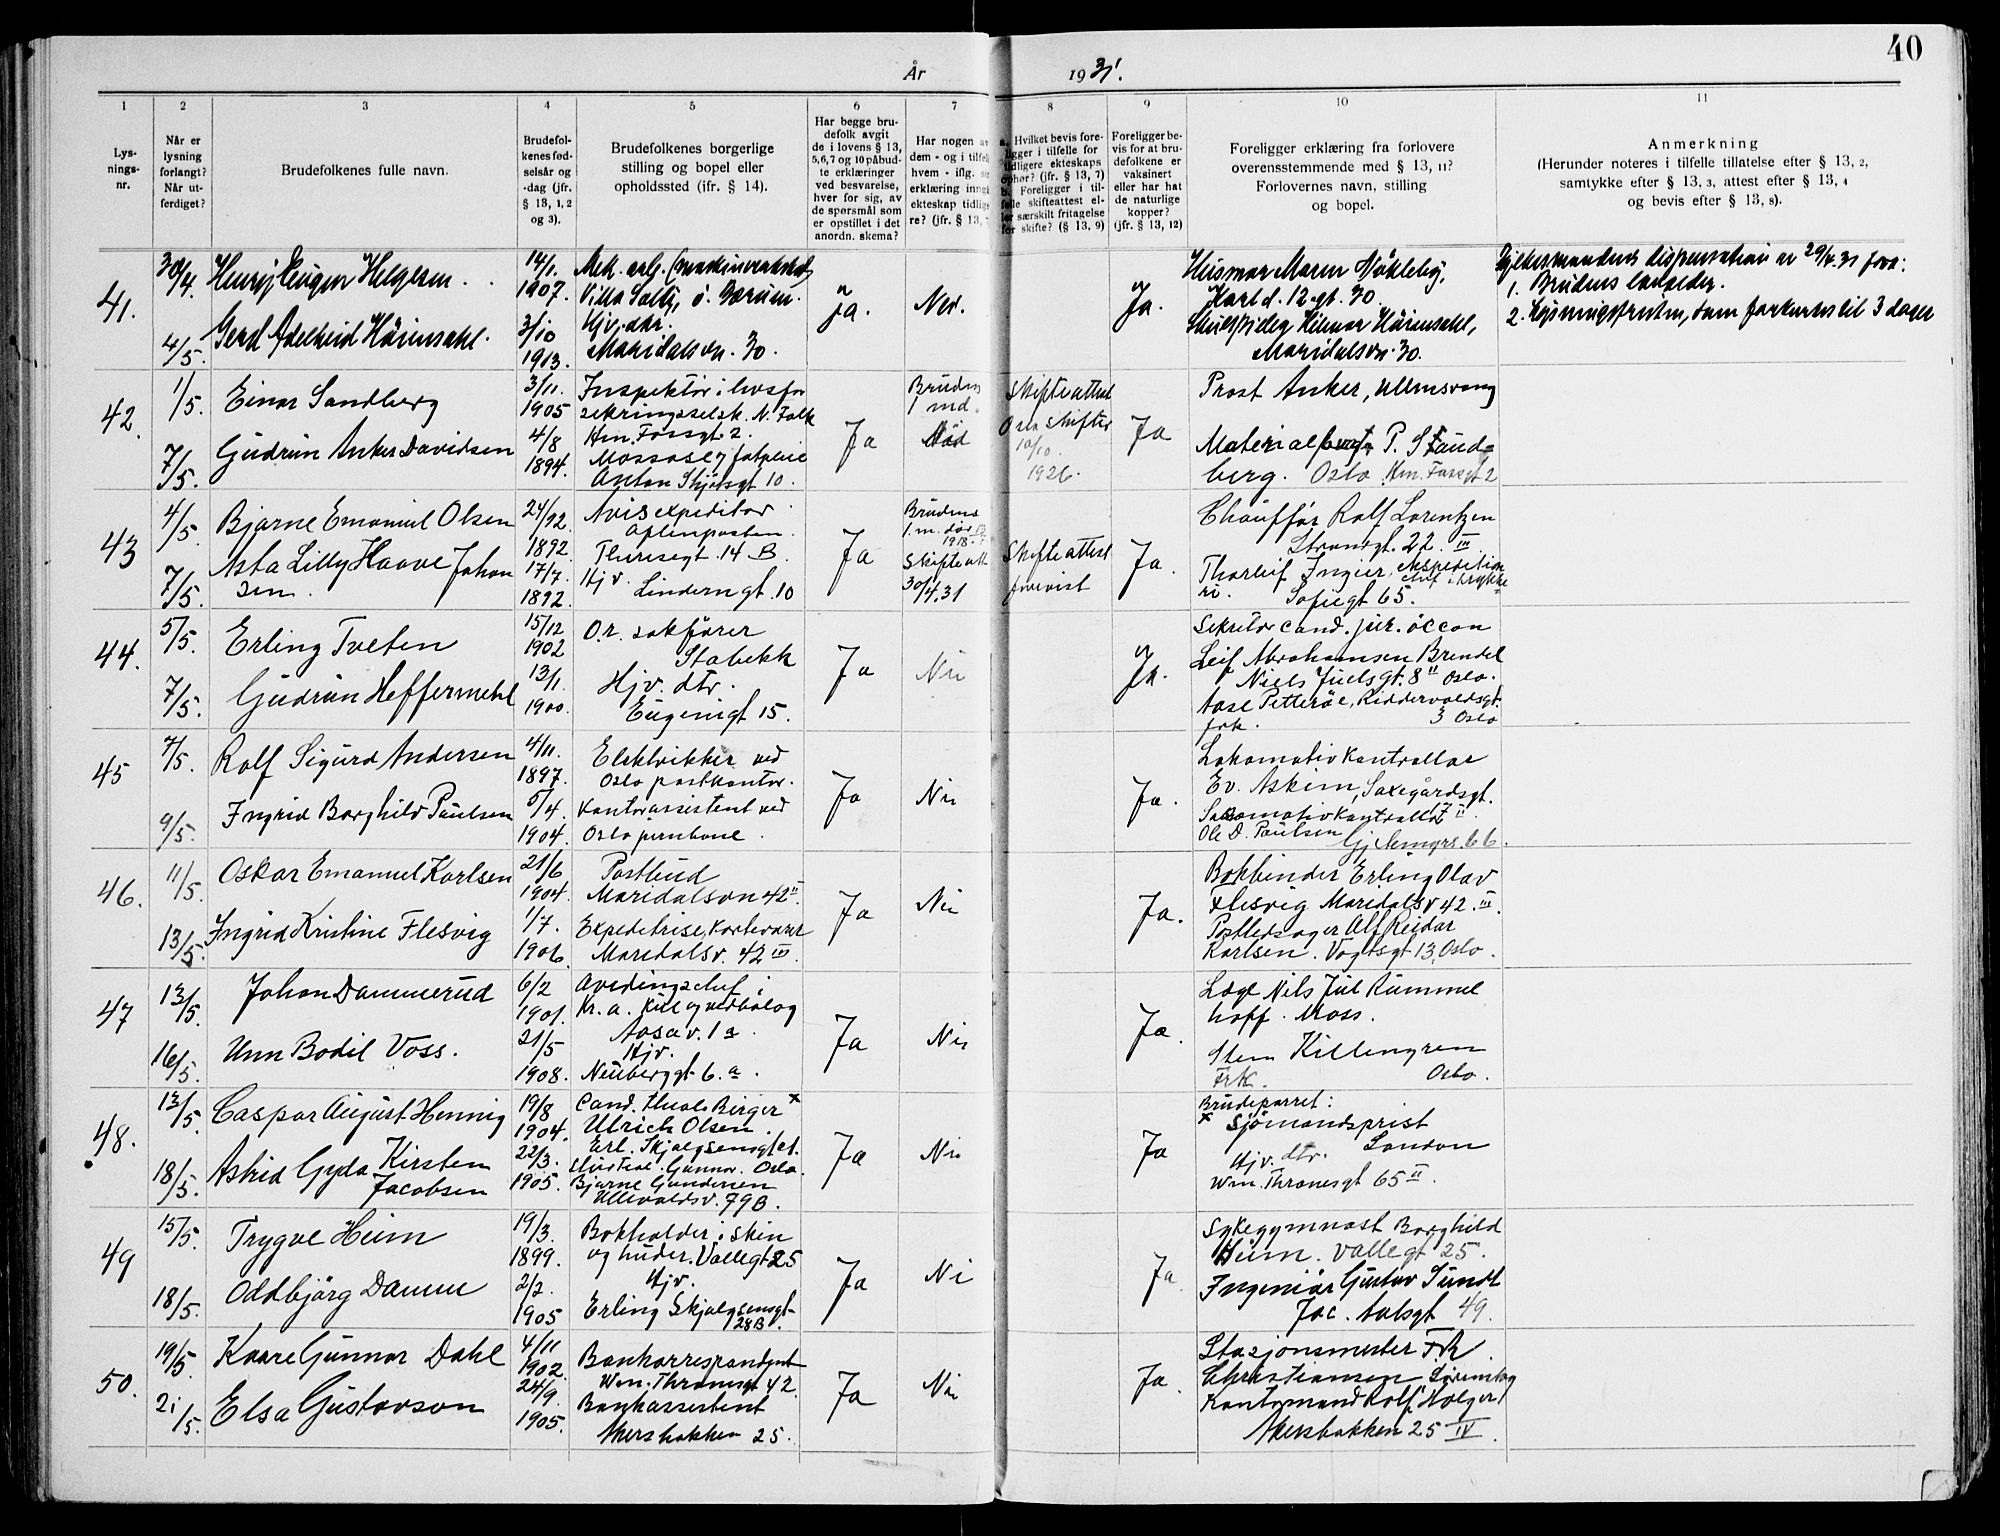 År 1931.
40
1 2 3 4 5 6 7 8 9 10 11
Lys-
nings-
nr.
Når er
lysning
forlangt?
Når ut-
ferdiget?
Brudefolkenes fulle navn.
Brudefol-
kenes fød-
selsår og
-dag (jfr.
§ 13, 1, 2
og 3).
Brudefolkenes borgerlige
stilling og bopel eller
opholdssted (ifr. § 14).
Har begge bru-
defolk avgit
de i lovens § 13,
5, 6, 7 og 10 påbud-
te erklæringer
ved besvarelse,
hver for sig, av
de spørsmål som
er opstillet i det
anordn. skema?
Har nogen a
dem - og i tilfelle
hvem - iflg. s
erklæring inng
ekteskap tidlig
re? (jfr. § 13,
a. Hvilket bevis fore-
ligger i tilfelle for
tidligere ekteskaps
ophør? (jfr. § 13, 7)
b. Foreligger i til-
felle skifteattest el-
ler særskilt fritagelse
for skifte? (§ 13, 9)
Foreligger be-
vis for at bru-
defolkene er
vaksinert
eller har hat
de naturlige
kopper?
(jfr. § 13, 12)
Foreligger erklæring fra forlovere
overensstemmende med § 13, 11?
Forlovernes navn, stilling
og bopel.
Anmerkning
(Herunder noteres i tilfelle tillatelse efter § 13, 2,
samtykke efter § 13, 3, attest efter § 13, 4
og bevis efter § 13, 8).
41.
30/4.
4/5.
Henry Eugen Helgesen.
Gerd Adelheid Hårinsdahl.
14/1.
1907.
3/10
1913.
Mek. arb. (maskinverksted)
Villa Solli, ö. Bærum.
Hjv. dtr.
Maridalsvn. 30.
Ja.
Nei.
Ja.
Husmor Maren Nökleby,
Karl d. 12 gt. 30.
Hilmar Hårinsdahl,
Maridalsvn. 30.
Fylkesmandens dispensation av 29/4.31 fra:
1. Brudens lavalder.
2. Lysningsfristen, som forkortes til 3 dager
42.
1/5.
7/5.
Einar Sandberg
Gudrun Anker Davidsen
3/11.
1905
4/8
1894.
Inspektör i livsfor
sekringsselsk. N. Folk
Hm. Fossgt. 2.
Massasje, fotpleie
Anton Schjötsgt 10.
Ja
Bruden
1 md.
död
Skifteattest
Oslo skifter
10/10.
1926.
Ja
Prost Anker, Ullensvang
Materialforv. P. Sand-
berg. Oslo. Hm. Fossgt 2
43
4/5
7/5.
Bjarne Emanuel Olsen
Asta Lilly Haave Johan
sen.
24/12.
1892.
17/7.
1892.
Avisexpeditör
Aftenposten.
Thereségt. 14 B.
Hjv.
Linderngt. 10
Ja
Brudens
1. m. död
1918.
Skifteatt
30/4.31
Skifteattest
forevist
Ja.
Chaufför Rolf Lorentzen
Strandgt. 22. III
Thorleif Ingier, ekspedition
chef i trykke
ri. Sofiegt 65.
44.
5/5.
7/5.
Erling Tveten
Gudrun Heffermehl
15/12
1902
13/1.
1900.
O.r. sakförer
Stabekk
Hjv. dtr.
Eugeniegt 15.
Ja
Nei
Ja.
Sekretær cand. jur. &
Leif Abrahamsen Brendel
Niels Juelsgt. 8 II Oslo.
Aase Petteröe, Riddervoldsgt.
frk. 3 Oslo
45
7/5.
9/5.
Rolf Sigurd Andersen
Ingrid Borghild Paulsen
4/11.
1897.
5/4.
1904.
Elektrikker ved
Oslo postkontor.
Kontorassistent ved
Oslo jernbane.
Ja
Nei
Ja.
Lokomotivkontrollør
Ev. Askim, Saxegårdsgt.
17 II.
Lokomotivkontrollør
Ole D. Paulsen
Gj Nemyrs. 66.
46.
11/5.
13/5.
Oskar Emanuel Karlsen
Ingrid Kristine Flesvig
21/6
1904.
1/7.
1906.
Postbud
Maridalsvn 42 II.
Expeditrise, kortevarer
Maridalsv. 42 III.
Ja
Nei
Ja.
Bokbinder Erling Olav
Flesvig Maridalsv 42. III.
Alf Reidar
Karlsen. Vogtsgt 13, Oslo.
47
13/5.
16/5.
Johan Dammerud
Unn Bodil Voss.
6/2
1901.
21/5
1908.
Avdelingschef i
Kr. a. Kul og vedbolag
Aasav. 1 a.
Hjv.
Neuberggt 6. a.
Ja
Nei
Ja.
Læge Nils Jul Rummel
hoff. Moss.
Sten Killengren
Frk. Oslo.
48.
13/5.
18/5.
Caspar August Hennig
Astrid Gyda Kirsten
Jacobsen
19/8
1904.
22/3.
1905.
Cand. theol. Birger x
Ulrich Olsen.
Erl. Skjalgsensgt
Oslo.
Bjarne Gundersen
Ullevoldsv. 79B.
Ja
Nei
Ja
Brudeparret:
x Sjömandsprest
London
Hjv. dtr.
Wm. Thranesgt 65 II.
49
15/5.
18/5.
Trygve Heim
Oddbjörg Damm
19/3.
1899.
2/2.
1905
Bokholder i skin
og huder. Vallegt 25
Hjv.
Erling Skjalgsensgt-
28B.
Ja
Nei
Ja
Sykegymnast Borghild
Heim. Vallegt 25.
Ingeniör Gustav Sundt
Jac. Aalsgt 49.
50.
19/5.
21/5.
Kaare Gunnar Dahl
Elsa Gustavson
4/11
1902.
24/9.
1905.
Bankorrespondent
Wm. Thranesgt 42.
Bankassistent
Akersbakken 25.
Ja
Nei
Ja.
Stasjonsmester F.R.
Christiansen
Kontormand Rolf Holger
Akersbakken 25 IV.